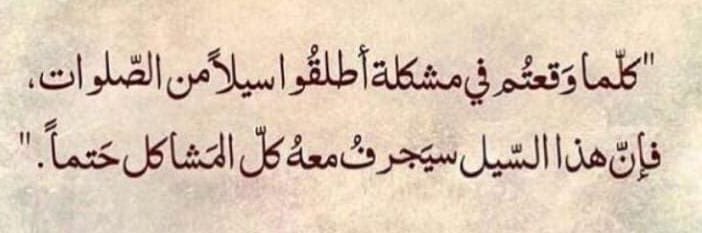 "كلّما وَقعتُم في مشكلة أطلقُوا سيلاً من الصّلوات،
فإنّ هذا السّيل سيَجرفُ معهُ كلّ المَشاكل حَتماً."